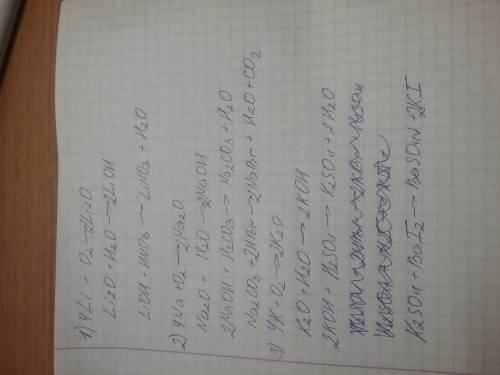 1) 4Li + O2 → 2Li2O
Li2O + H2O → 2LiOH
LiOH + HNO3 → LiNO3 + H2O
2) 4Na + O2 → 2Na2O
Na2O + H2O → 2NaOH
2NaOH + H2CO3 → Na2CO3 + H2O
Na2CO3 + 2HBr → 2NaBr + H2O + CO2
3) 4K + O2 → 2K2O
K2O + H2O → 2KOH
2KOH + H2SO4 → K2SO4 + 2H2O
K2SO4 + BaI2 → BaSO4 + 2KI